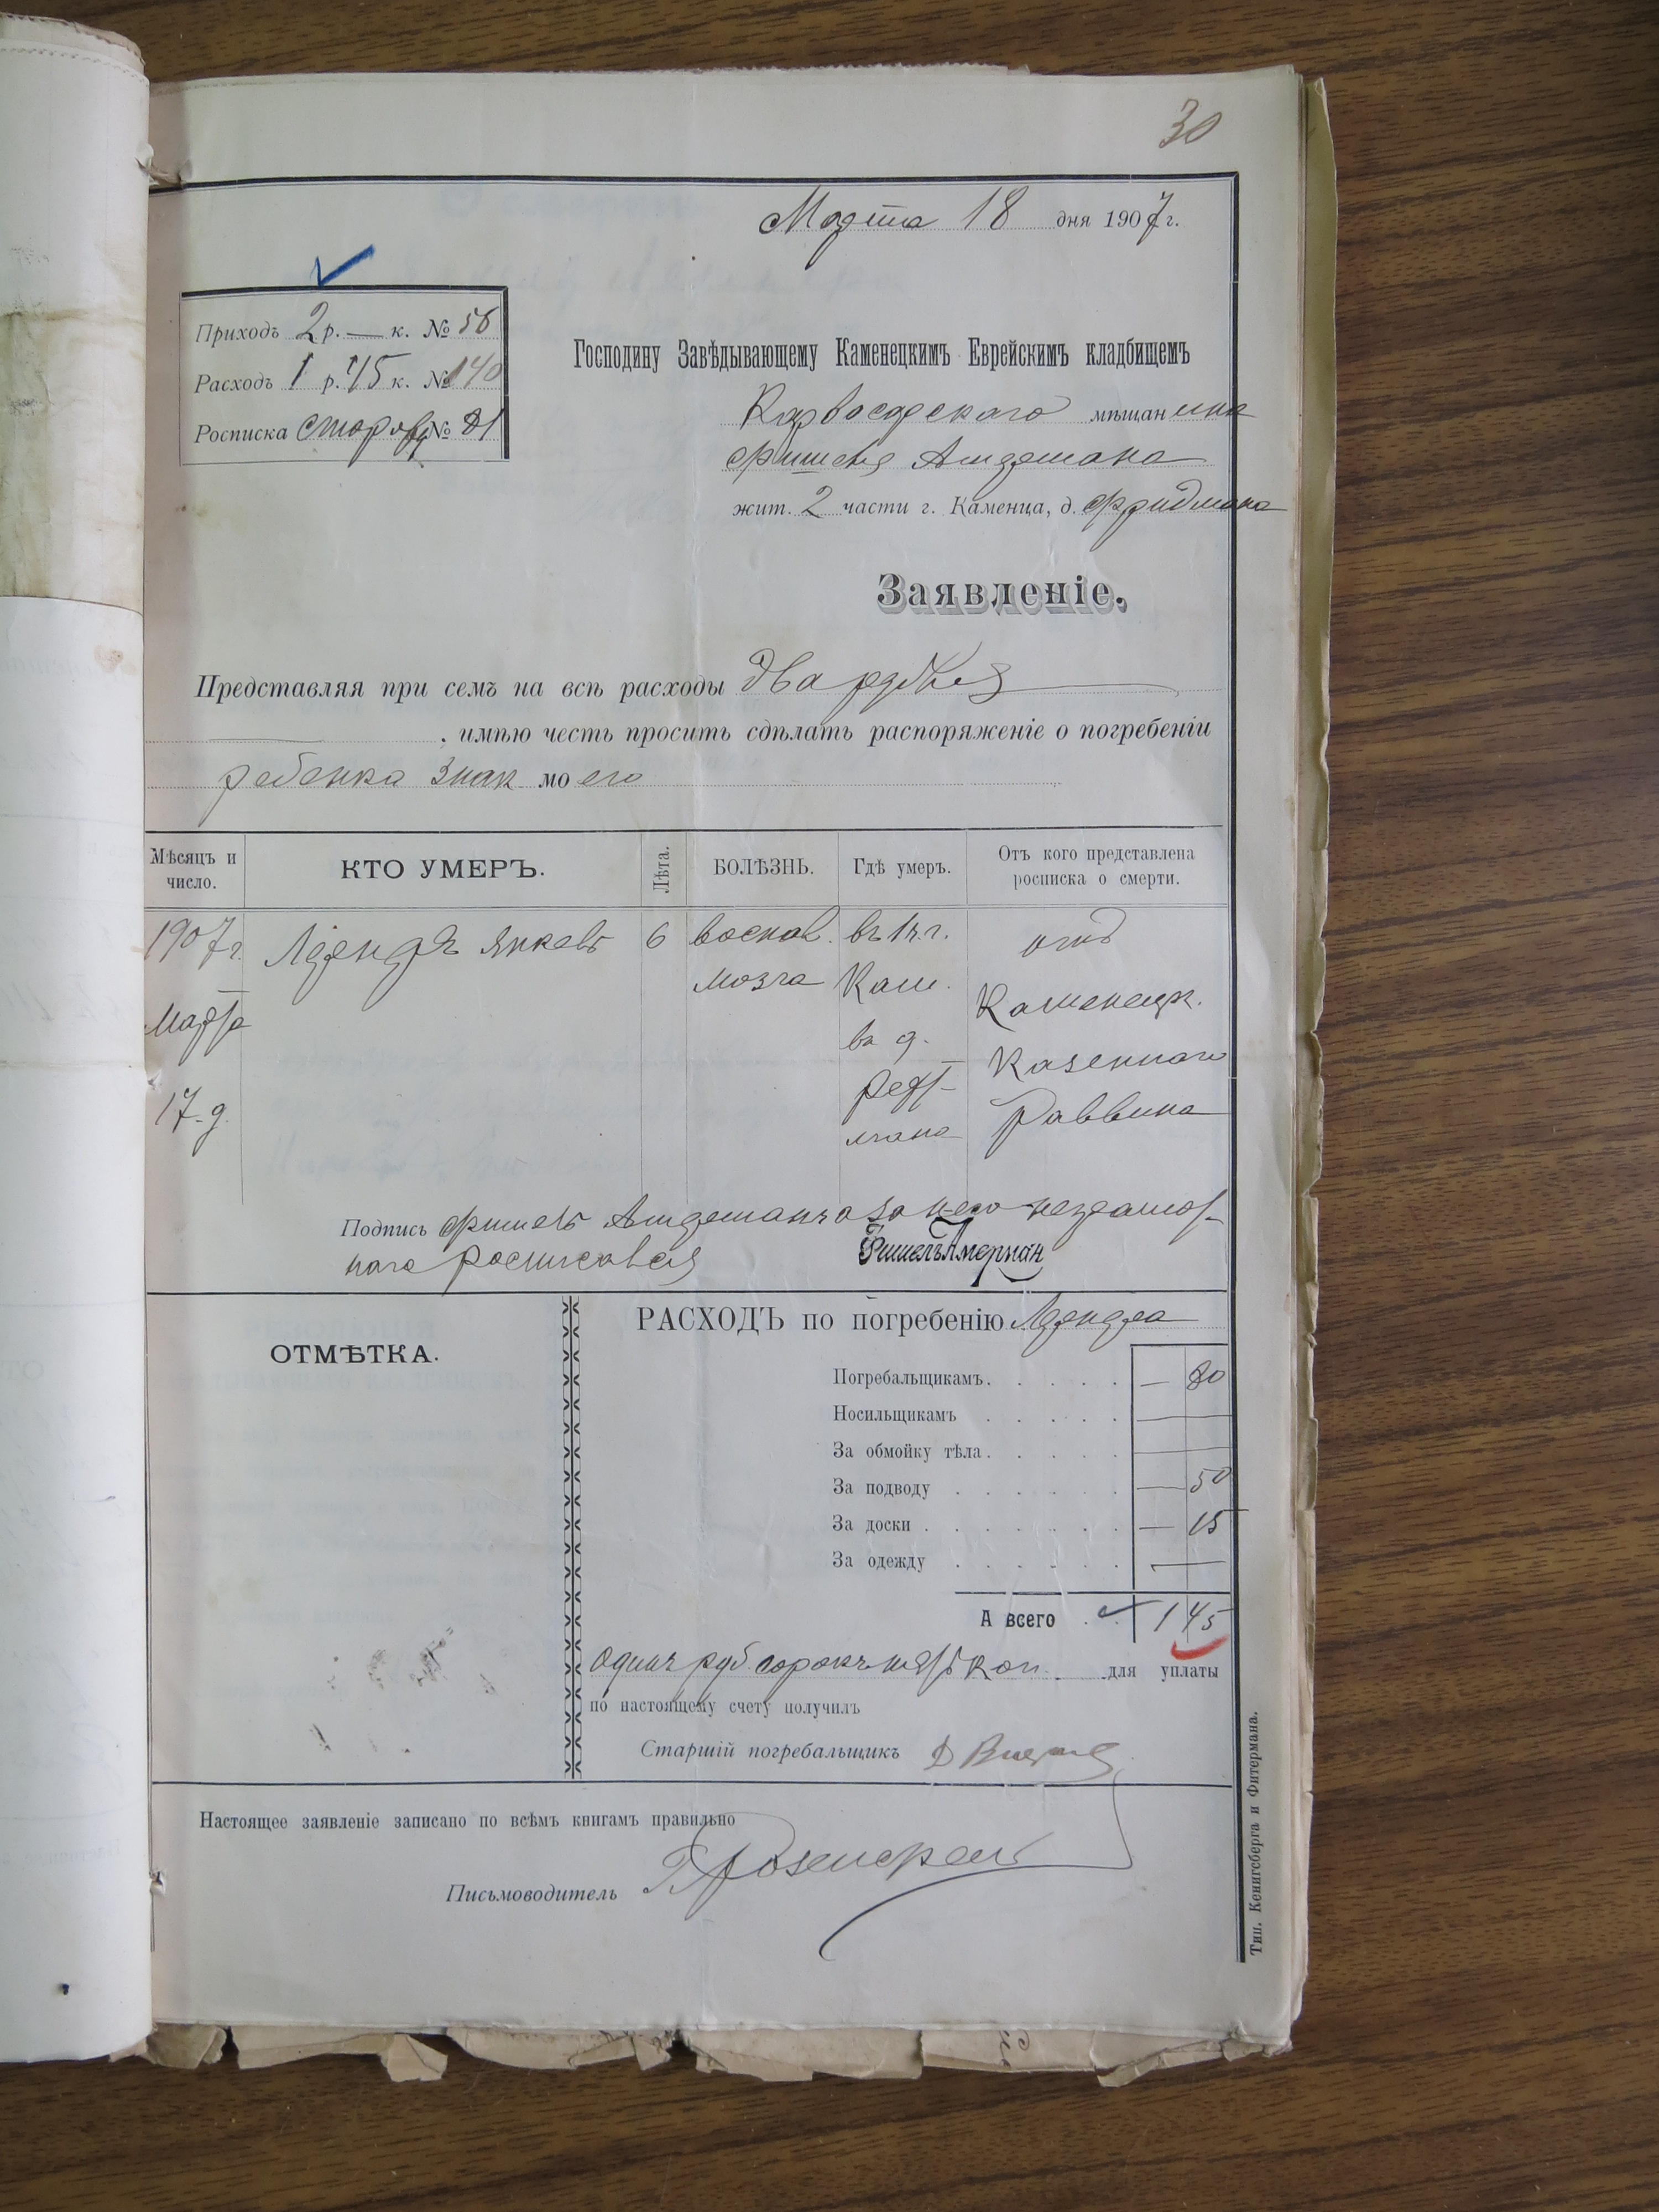 30
Марта 18 дня 1907 г.
Приходъ 2 р. — к. № 56
Расходъ 1 р. 45 к. № 140
Росписка № 81
Господину Завѣдывающему Каменецкимъ Еврейскимъ кладбищемъ
мѣщанина
Фишеля
жит. 2 части г. Каменца, д. Фридмана
Заявленіе.
Представляя при семъ на всѣ расходы два рубля
, имѣю честь просить сдѣлать распоряженіе о погребеніи
ребенка знак. моего
Мѣсяцъ и число.
КТО УМЕРЪ.
Лѣта.
БОЛѢЗНЬ.
Гдѣ умеръ.
Отъ кого представлена росписка о смерти.
1907 г.
Марта
17 д.
Янкель
6
воспал.
мозга
въ г.
Кам.
въ д.
отъ
Каменецк.
Казеннаго
Раввина
Подпись Фишель а за него неграмот-
наго росписался
Фишель Амерман
ОТМѢТКА.
РАСХОДЪ по погребенію
Погребальщикамъ. — 80
Носильщикамъ —
За обмойку тѣла. —
За подводу — 50
За доски — 15
За одежду —
А всего 1 45
Одинъ руб. сорокъ пять коп. для уплаты
по настоящему счету получилъ
Старшій погребальщикъ
Настоящее заявленіе записано по всѣмъ книгамъ правильно
Письмоводитель
Тип. Кенигсберга и Фитермана.